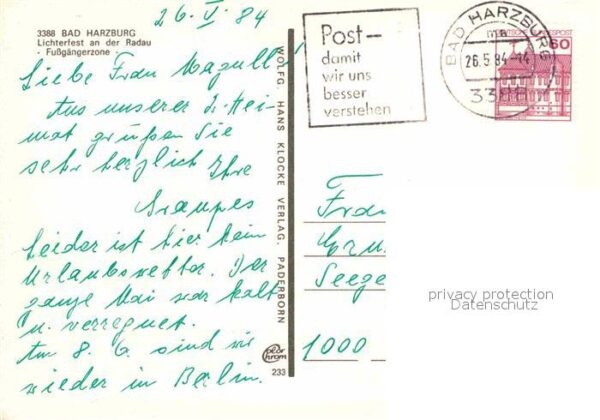 26. V. 84
3388 BAD HARZBURG
Lichterfest an der Radau
- Fußgängerzone -
Liebe Frau Magull!
Aus unserer 2. Hei-
mat grüßen Sie
sehr herzlich Ihre
Graupes
Leider ist hier kein
Urlaubswetter. Der
ganze Mai war kalt
u. verregnet.
Am 8. 6. sind wir
wieder in Berlin.
WOLFG. HANS KLOCKE VERLAG, PADERBORN
233
Post-
damit
wir uns
besser
verstehen
BAD HARZBURG
26.5.84-14
3388
60
Frau
Seege
1000
privacy protection
Datenschutz